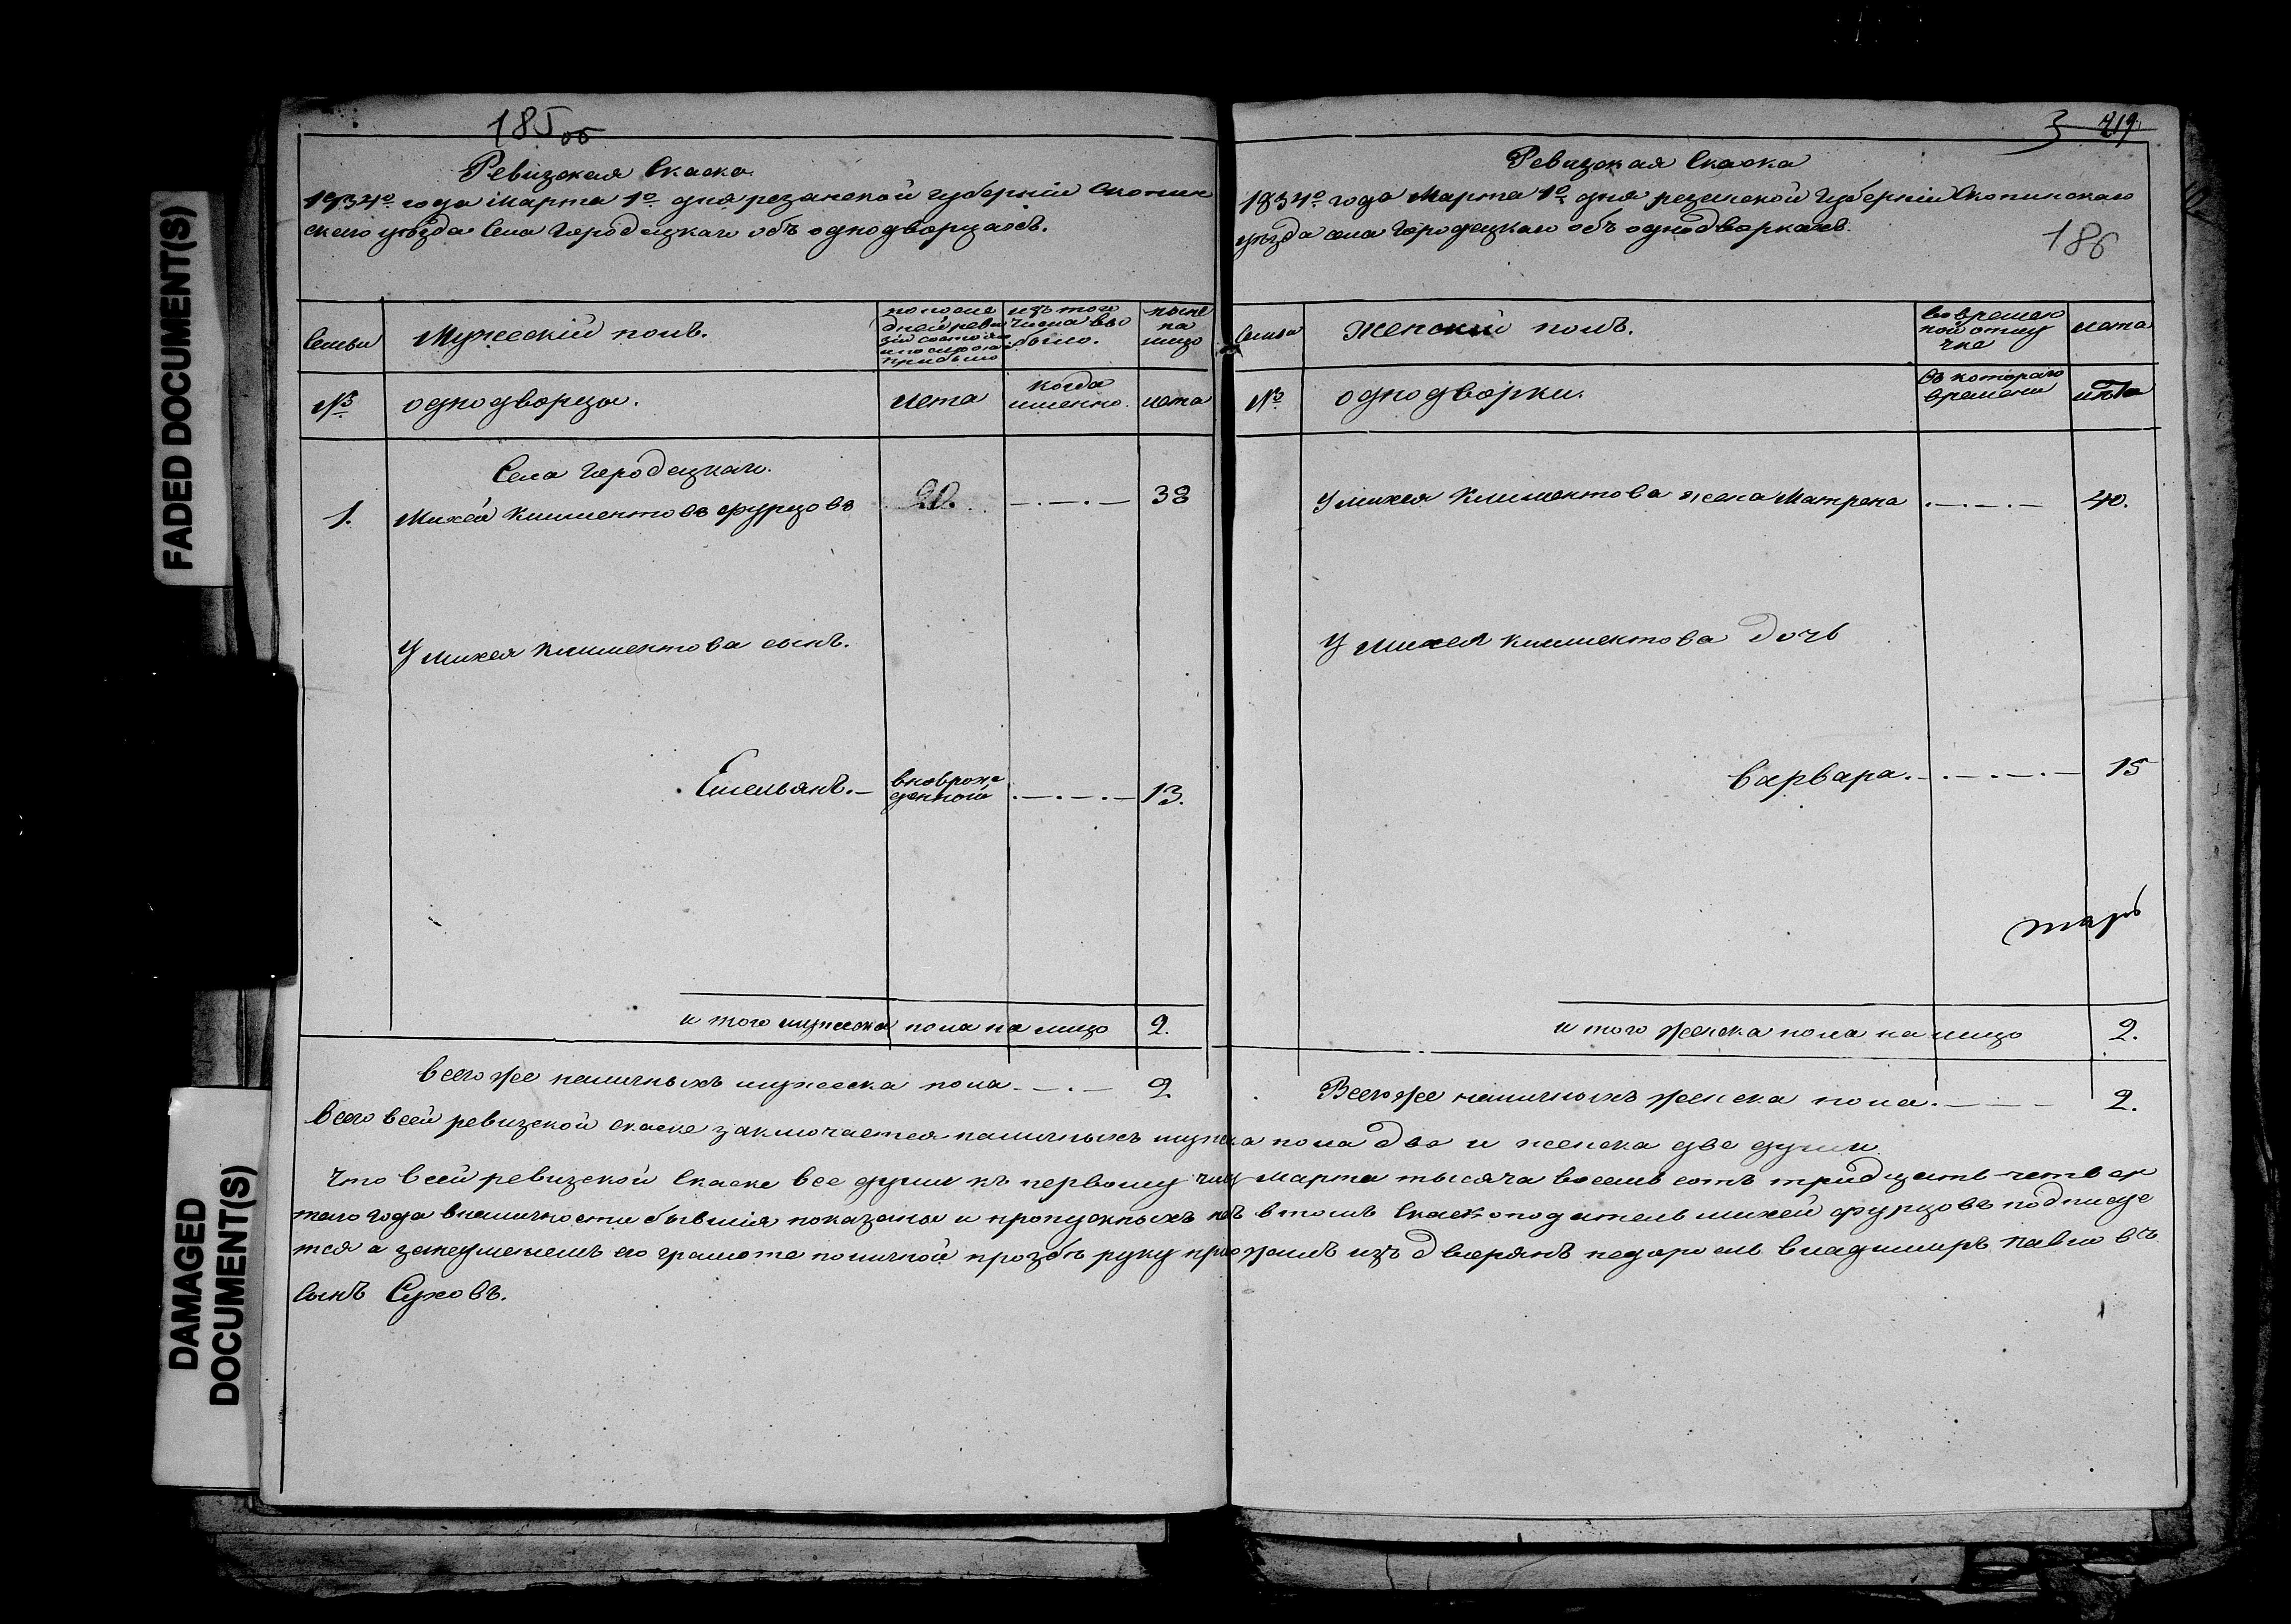 FADED DOCUMENT(S)
DAMAGED
DOCUMENT(S)
185 об
Ревизская Скаска
1834го года Марта 1го дня резанской губернiи Скопин
скаго уѣзда Села Городецкаго объ однодворцахъ.
Семьи
Мужескiй полъ.
по после
дней реви
зiи состояло
и после того
прибыло
изъ того
числа вы
было.
ныне
на
лицо
№
однодворцы.
лета
когда
именно.
лета
Села Городецкаго.
1.
Михей Климентовъ фурцовъ
20.
38
У михея климентова сынъ.
Емельянъ.
вновь рож
денной
13.
и того мужеска пола на лицо 2.
всего же наличныхъ мужеска пола 2.
3
219
Ревизская Скаска
1834го года Марта 1го дня резанской губернiи Скопинскаго
уѣзда села Городецкаго объ однодворкахъ.
186
Семьи
Женский полъ.
во времен
ной отлу
чке
лета
№
однодворки.
Съ котораго
времени
лѣта
У михея Климентова жена Матрена
40.
У михея климентова дочь
варвара.
15
и того женска пола на лицо 2.
Всего же наличныхъ женска пола. 2.
всего всей ревизской скаске заключается наличныхъ мужска пола два и женска две души
Что всей ревизской Скаске все души къ первому числу марта тысяча восемь сотъ тридцать четвер
таго года вналичности бывшiя показаны и пропускныхъ нетъ втомъ Скаскоподатель михей фурцовъ подписуе
тся а занеуменiемъ его грамоте поличной прозбѣ руку приложилъ изъ дворянъ недоросль владимиръ павловъ
сынъ Суховъ.